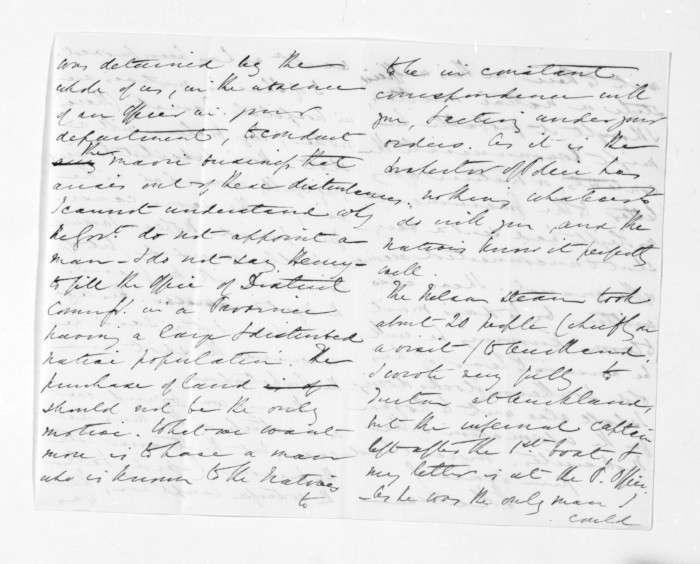 was detained by the
whole of us, in the absence
of an Officer in your
department, to conduct
the maori business that
arises out of these disturbances.
I cannot understand why
the Govt. do not appoint a
man - I do not say Henry -
to fill the Office of District
Commr. in a Province
having a large & disturbed
native population. The
purchase of land is of
should not be the only
motive. What we want
more is to have a man
who is known to the Natives
to
to be in constant
correspondence with
you, & acting under your
orders. As it is the
Inspector of Police has
nothing whatever to
do with you, and the
natives know it perfectly
well.
The Nelson steam took
about 20 people (chiefly on
a visit) to Auckland.
I wrote very fully to
at Auckland,
but the infernal captain
left after the 1st. boat, &
my letter is at the P. Office.
As he was the only man I
could